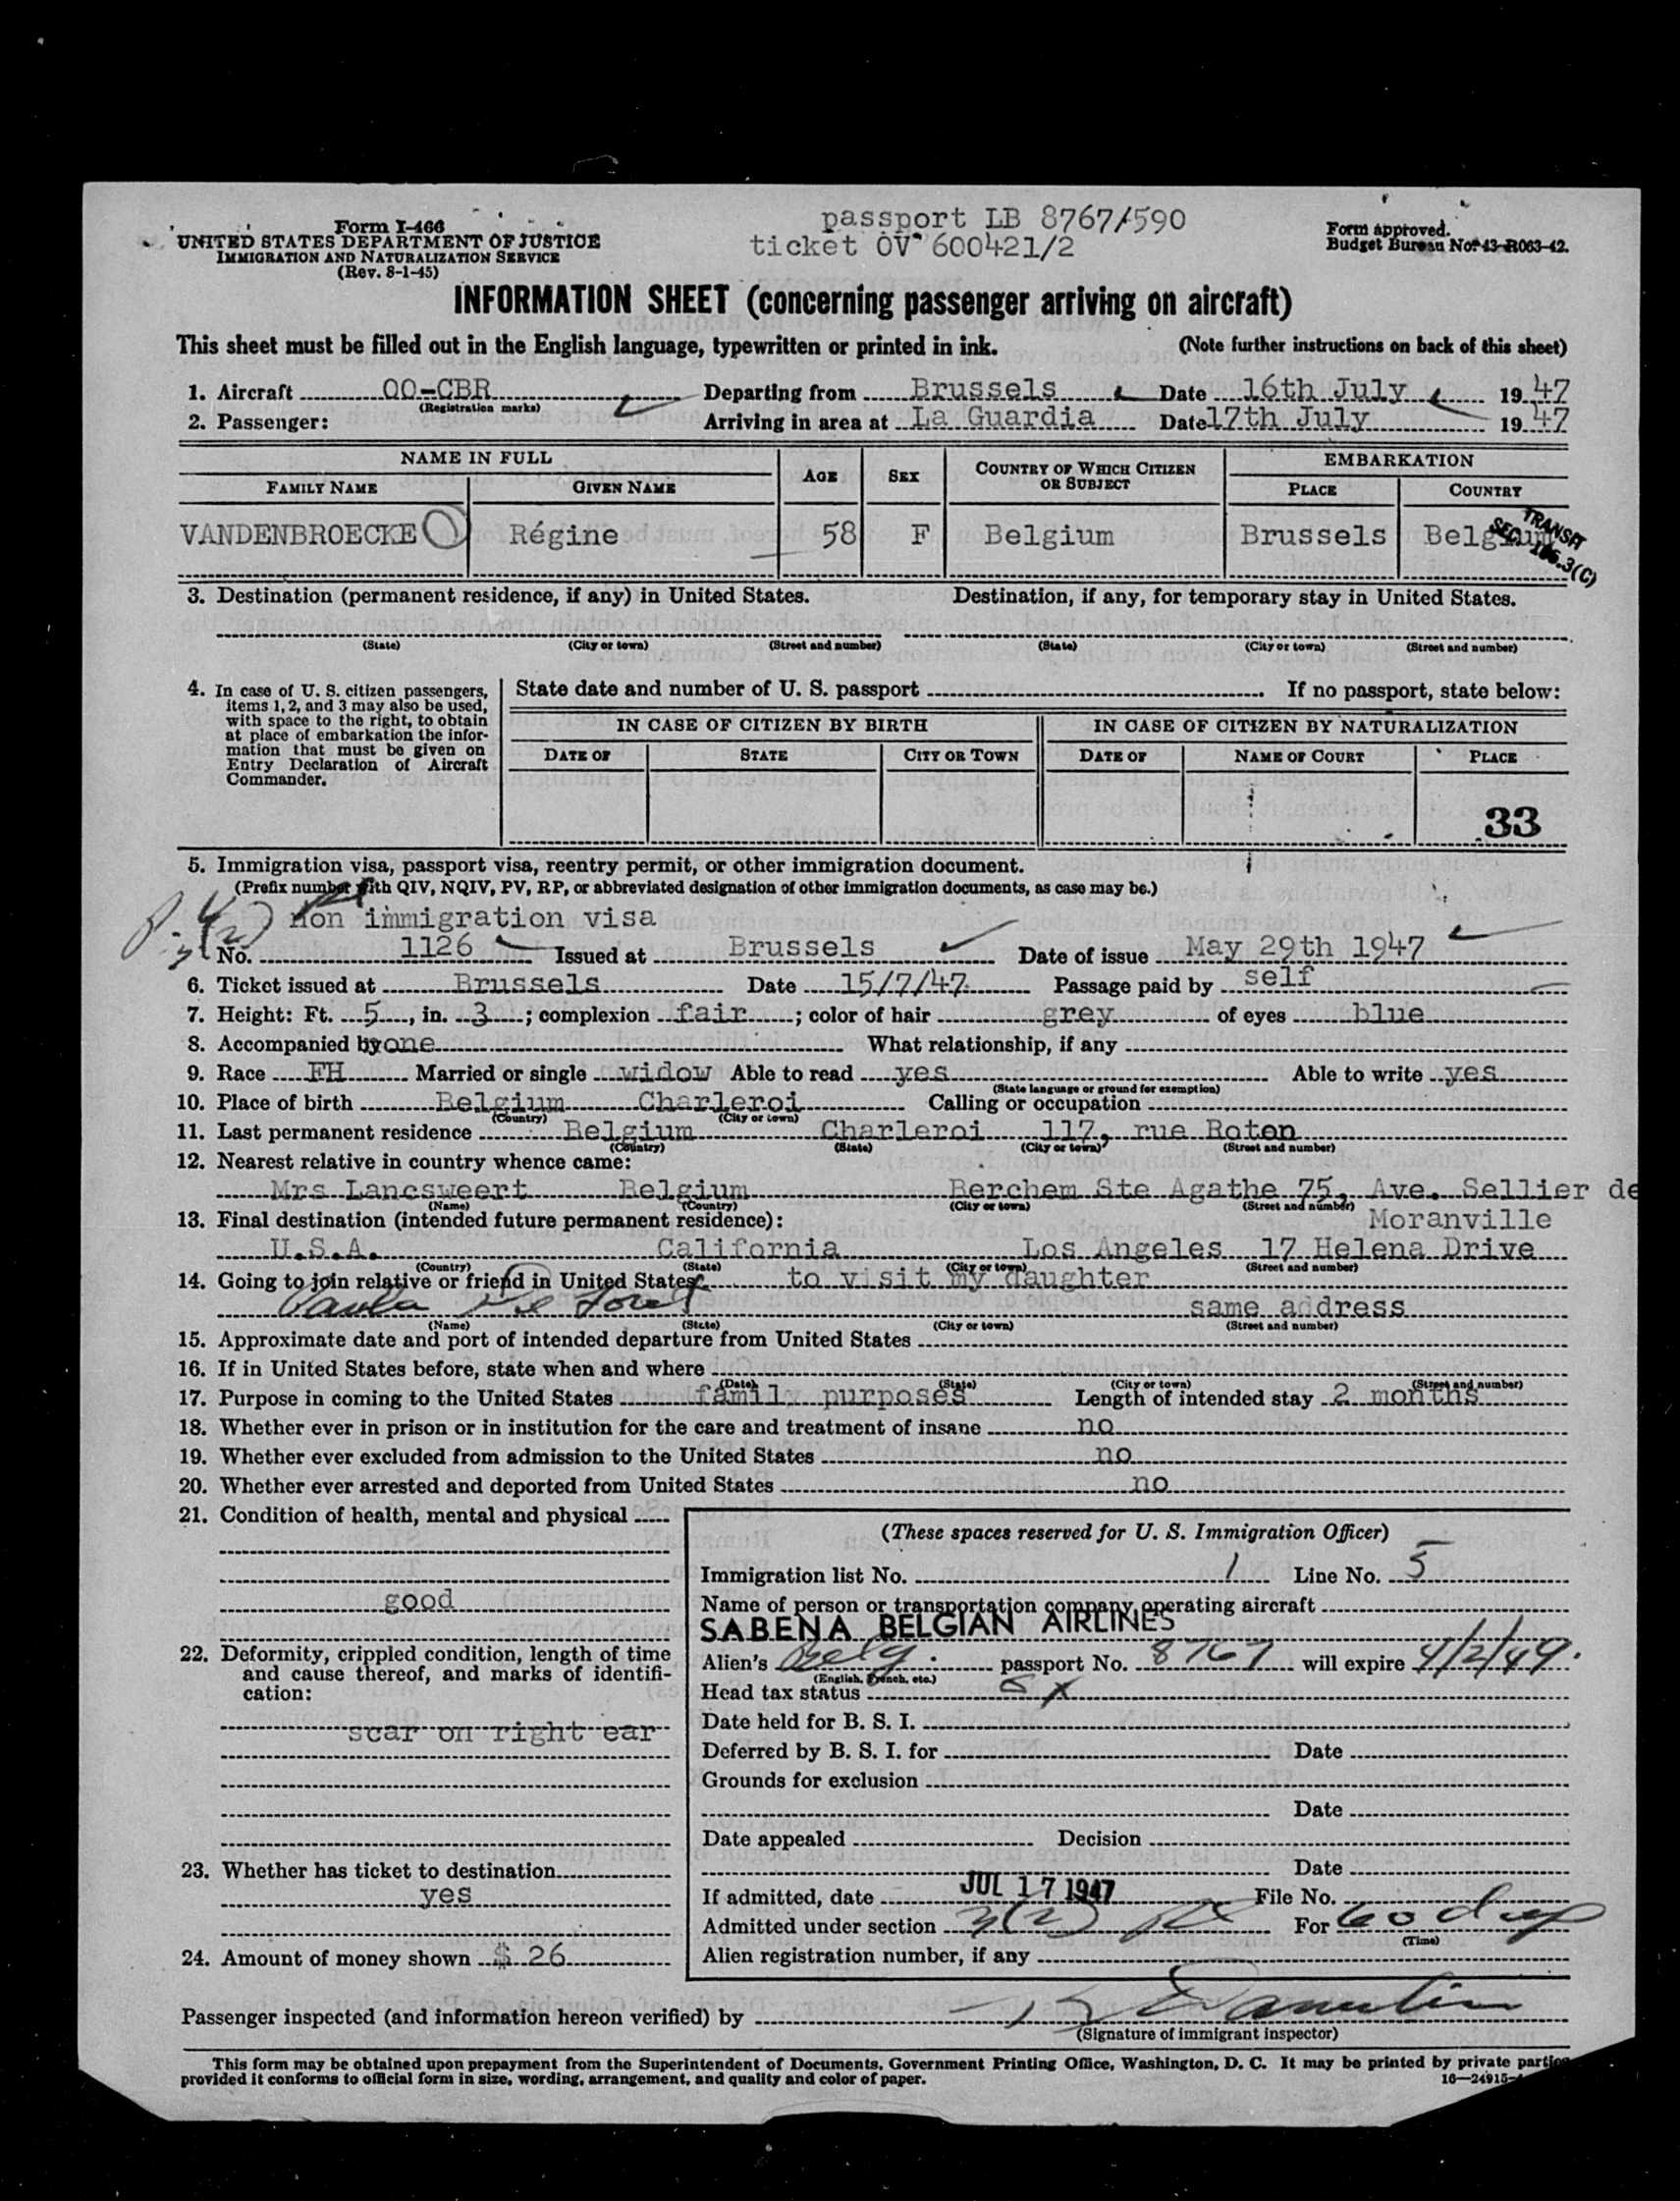 passport LB 8767/590
ticket OV 600421/2
Form I-466
UNITED STATES DEPARTMENT OF JUSTICE
IMMIGRATION AND NATURALIZATION SERVICE
(Rev. 8-1-45)
Form approved.
Budget Bureau No. 43-R063-42.
INFORMATION SHEET (concerning passenger arriving on aircraft)
This sheet must be filled out in the English language, typewritten or printed in ink. (Note further instructions on back of this sheet)
1. Aircraft OO-CBR Departing from Brussels Date 16th July 1947
(Registration marks)
2. Passenger: Arriving in area at La Guardia Date 17th July 1947
NAME IN FULL AGE SEX COUNTRY OF WHICH CITIZEN OR SUBJECT EMBARKATION
FAMILY NAME GIVEN NAME PLACE COUNTRY
VANDENBROECKE Régine 58 F Belgium Brussels Belgium
TRANSIT
SEC. 3(C)
3. Destination (permanent residence, if any) in United States. Destination, if any, for temporary stay in United States.
(State) (City or town) (Street and number) (State) (City or town) (Street and number)
4. In case of U. S. citizen passengers, items 1, 2, and 3 may also be used, with space to the right, to obtain at place of embarkation the information that must be given on Entry Declaration of Aircraft Commander.
State date and number of U. S. passport If no passport, state below:
IN CASE OF CITIZEN BY BIRTH IN CASE OF CITIZEN BY NATURALIZATION
DATE OF STATE CITY OR TOWN DATE OF NAME OF COURT PLACE
33
5. Immigration visa, passport visa, reentry permit, or other immigration document.
(Prefix number with QIV, NQIV, PV, RP, or abbreviated designation of other immigration documents, as case may be.)
Non immigration visa
No. 1126 Issued at Brussels Date of issue May 29th 1947
6. Ticket issued at Brussels Date 15/7/47 Passage paid by self
7. Height: Ft. 5, in. 3; complexion fair; color of hair grey of eyes blue
8. Accompanied by one What relationship, if any
9. Race FH Married or single widow Able to read yes Able to write yes
(State language or ground for exemption)
10. Place of birth Belgium Charleroi Calling or occupation
(Country) (City or town)
11. Last permanent residence Belgium Charleroi 117, rue Roton
(Country) (State) (City or town) (Street and number)
12. Nearest relative in country whence came:
Mrs Lancsweert Belgium Berchem Ste Agathe 75, Ave. Sellier de
(Name) (Country) (City or town) (Street and number)
Moranville
13. Final destination (intended future permanent residence):
U.S.A. California Los Angeles 17 Helena Drive
(Country) (State) (City or town) (Street and number)
14. Going to join relative or friend in United States to visit my daughter
Paula same address
(Name) (State) (City or town) (Street and number)
15. Approximate date and port of intended departure from United States
16. If in United States before, state when and where
(Date) (State) (City or town) (Street and number)
17. Purpose in coming to the United States family purposes Length of intended stay 2 months
18. Whether ever in prison or in institution for the care and treatment of insane no
19. Whether ever excluded from admission to the United States no
20. Whether ever arrested and deported from United States no
21. Condition of health, mental and physical
good
22. Deformity, crippled condition, length of time and cause thereof, and marks of identification:
scar on right ear
23. Whether has ticket to destination
yes
24. Amount of money shown $ 26
(These spaces reserved for U. S. Immigration Officer)
Immigration list No. 1 Line No. 5
Name of person or transportation company operating aircraft
SABENA BELGIAN AIRLINES
Alien's Belg. passport No. 8767 will expire 4/2/49.
(English, French, etc.)
Head tax status
Date held for B. S. I.
Deferred by B. S. I. for Date
Grounds for exclusion
Date
Date appealed Decision
Date
If admitted, date JUL 17 1947 File No.
Admitted under section 3(2) For 60 days
(Time)
Alien registration number, if any
Passenger inspected (and information hereon verified) by
(Signature of immigrant inspector)
This form may be obtained upon prepayment from the Superintendent of Documents, Government Printing Office, Washington, D. C. It may be printed by private parties
provided it conforms to official form in size, wording, arrangement, and quality and color of paper.
16—24915